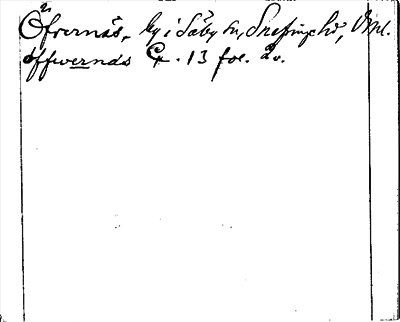 Öfvernäs, by i Säby sn, Snefringe hd, Vml.
öffwernäs C. 13 fol. 2v.